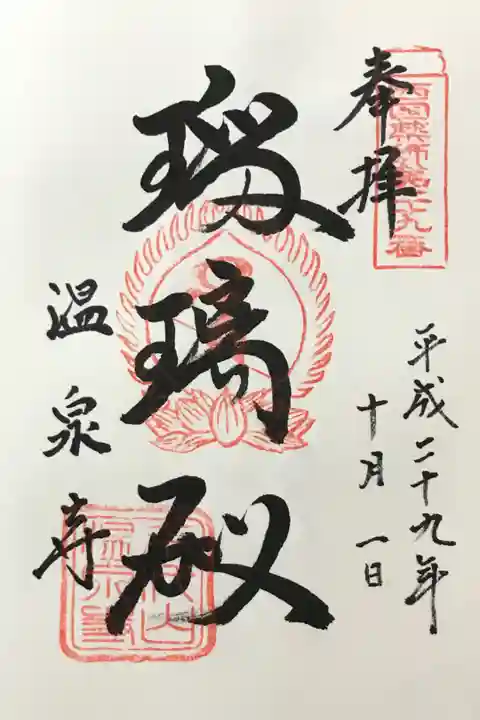 奉拝
西国薬師第二十九番
平成二十九年
十月一日
瑠璃殿
温泉寺